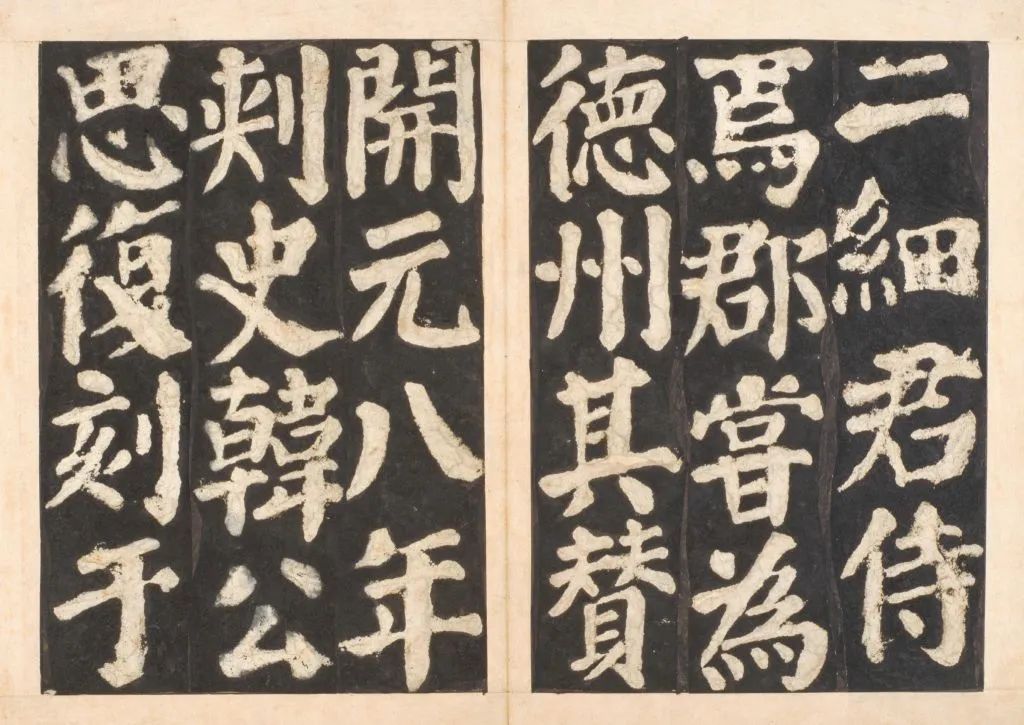 二細君侍
焉郡嘗為
德州其贊
開元八年
刺史韓公
思復刻于